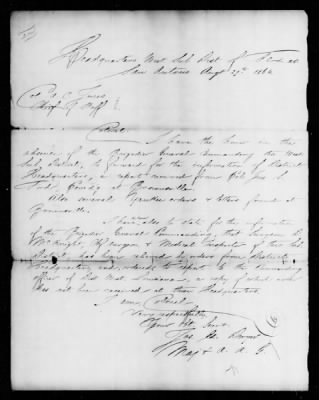 Headquarters West Sub Dist of Texas
San Antonio Augt 27th 1864
Chief of Staff
Colonel
I have the honor in the
absence of the Brigadier General Commanding the West
Sub District, to forward for the information of District
Headquarters, a report received from Col Jno S.
Ford, Comdg at Brownsville.
Also several Yankee orders & letters found at
Brownsville.
I have also to state for the information
of the Brigdr General Commanding, that Surgeon
McKnight, Chf Surgeon & Medical Inspector of this Sub
District, has been relieved by orders from District
Headquarters and ordered to report to the Commanding
Officer of Dist West Louisiana, a copy of said order
has not been received at these Headquarters.
I am, Colonel
Very respectfully
Your Obt Servt
Maj & A. A. G.